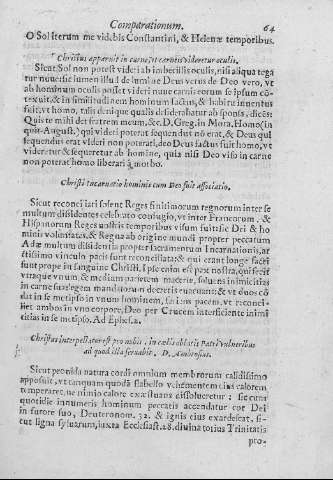 Comparationum. 64
O Sol iterum me videbis Constantini, & Helenæ temporibus.
Christus apparuit in carne, vt carnis videretur oculis.
Sicut Sol non potest videri ab imbecillis oculis, nisi aliqua tega
tur nube: sic ipsum illud de lumine Deus verus de Deo vero, vt
ab hominum oculis posset videri nube carnis eorum se ipsum cō-
texit, & in similitudinem hominum factus, & habitu inuentus
fuit, vt homo, talis deníque qualis desiderabatur ab sponsa, dicēs:
Quis te mihi det fratrem meum, &c. D. Greg. in Mora. Homo (in
quit August.) qui videri poterat sequendus nō erat, & Deus qui
sequendus erat videri non poterat, ideo Deus factus fuit homo, vt
videretur & sequeretur ab homine, quia nisi Deo viso in carne
non poterat homo liberari à morbo.
Christi incarnatio hominis cum Deo fuit associatio.
Sicut reconciliari solent Reges finitimorum regnorum inter se
multum dissidentes celebrato coniugio, vt inter Francorum, &
Hispanorum Reges nostris temporibus visum fuit: sic Dei & ho
minis voluntates, & Regna ab origine mundi propter peccatum
Adæ multum dissidentia propter sacramentum Incarnationis, ar
ctissimo vinculo pacis sunt reconciliata: & qui erant longe facti
sunt prope in sanguine Christi, ipse enim est pax nostra, qui fecit
vtraque vnum, & medium parietem maceriæ, soluens inimicitias
in carne sua: legem mandatorum decretis euacuans: & vt duos cō
dat in se metipso in vnum hominem, faciens pacem, vt reconci-
liet ambos in vno corpore, Deo per Crucem interficiens inimi
titias in se metipso. Ad Ephes. 2.
Christus interpellatur est pro nobis, in cœlo oblatis Patri vulneribus
ad quod illa seruabit. D. Ambrosius.
Sicut prouida natura cordi omnium membrorum calidissimo
apposuit, vt tanquam quodā flabello vehementem eius calorem
temperaret, ne nimio calore exæstuans dissolueretur: sic cum
quotidie innumeris hominum peccatis accendatur cor Dei
in furore suo, Deuteronom. 32. & ignis eius exardescat, si-
cut ligna syluarum, iuxta Ecclesiast. 28. diuina totius Trinitatis
pro-